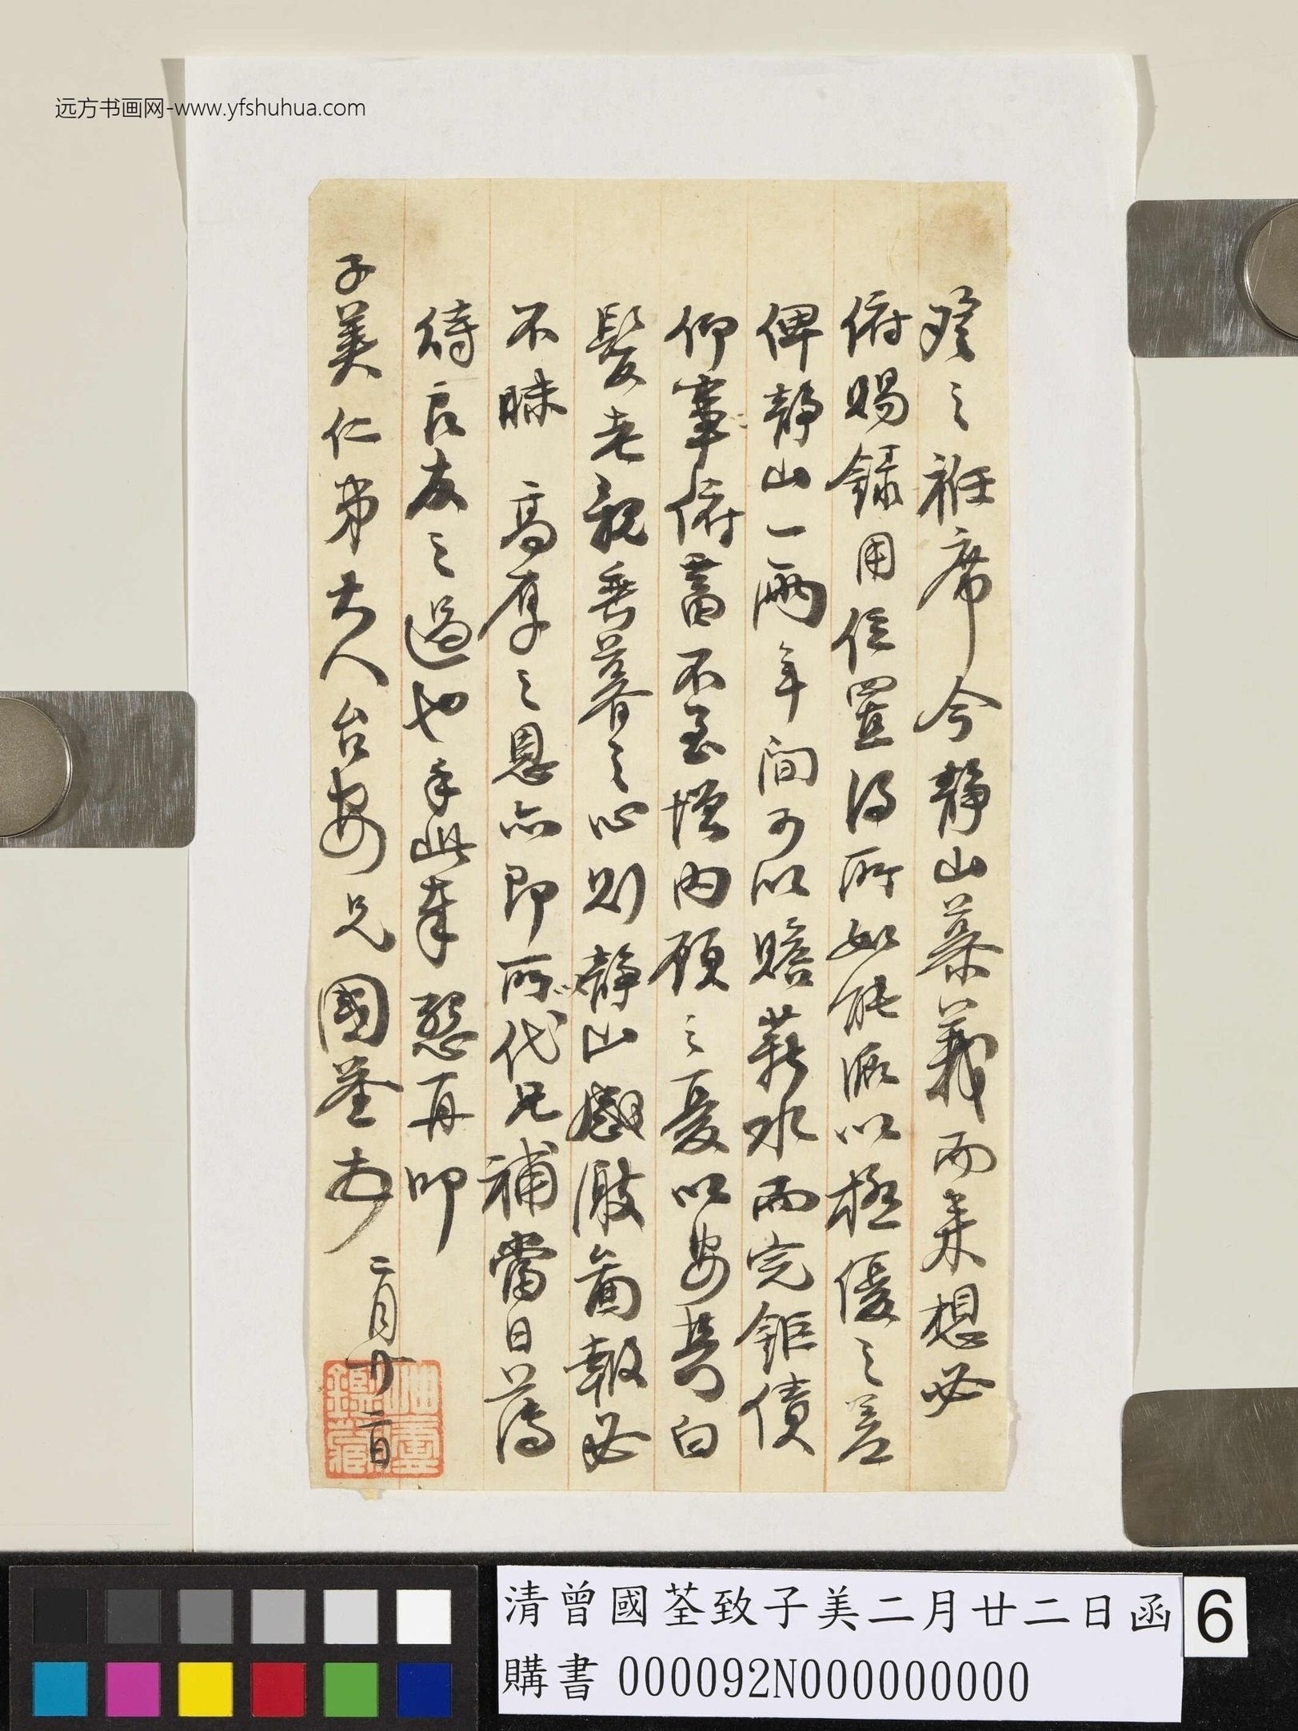 远方书画网-www.yfshuhua.com
登之袵席今靜山慕義而來想必
俯賜錄用位置得所如能派以極優之差
俾靜山一兩年間可以贍薪水而完鉅債
仰事俯畜不至增內顧之憂以安長白
髮老親垂暮之心則靜山感激啚報必
不昧 高厚之恩亦即所以代兄補當日薄
待良友之過也手此奉懇再叩
子美仁弟大人台安兄國荃頓 二月廿二日
清曾國荃致子美二月廿二日函
購書 000092N000000000
6